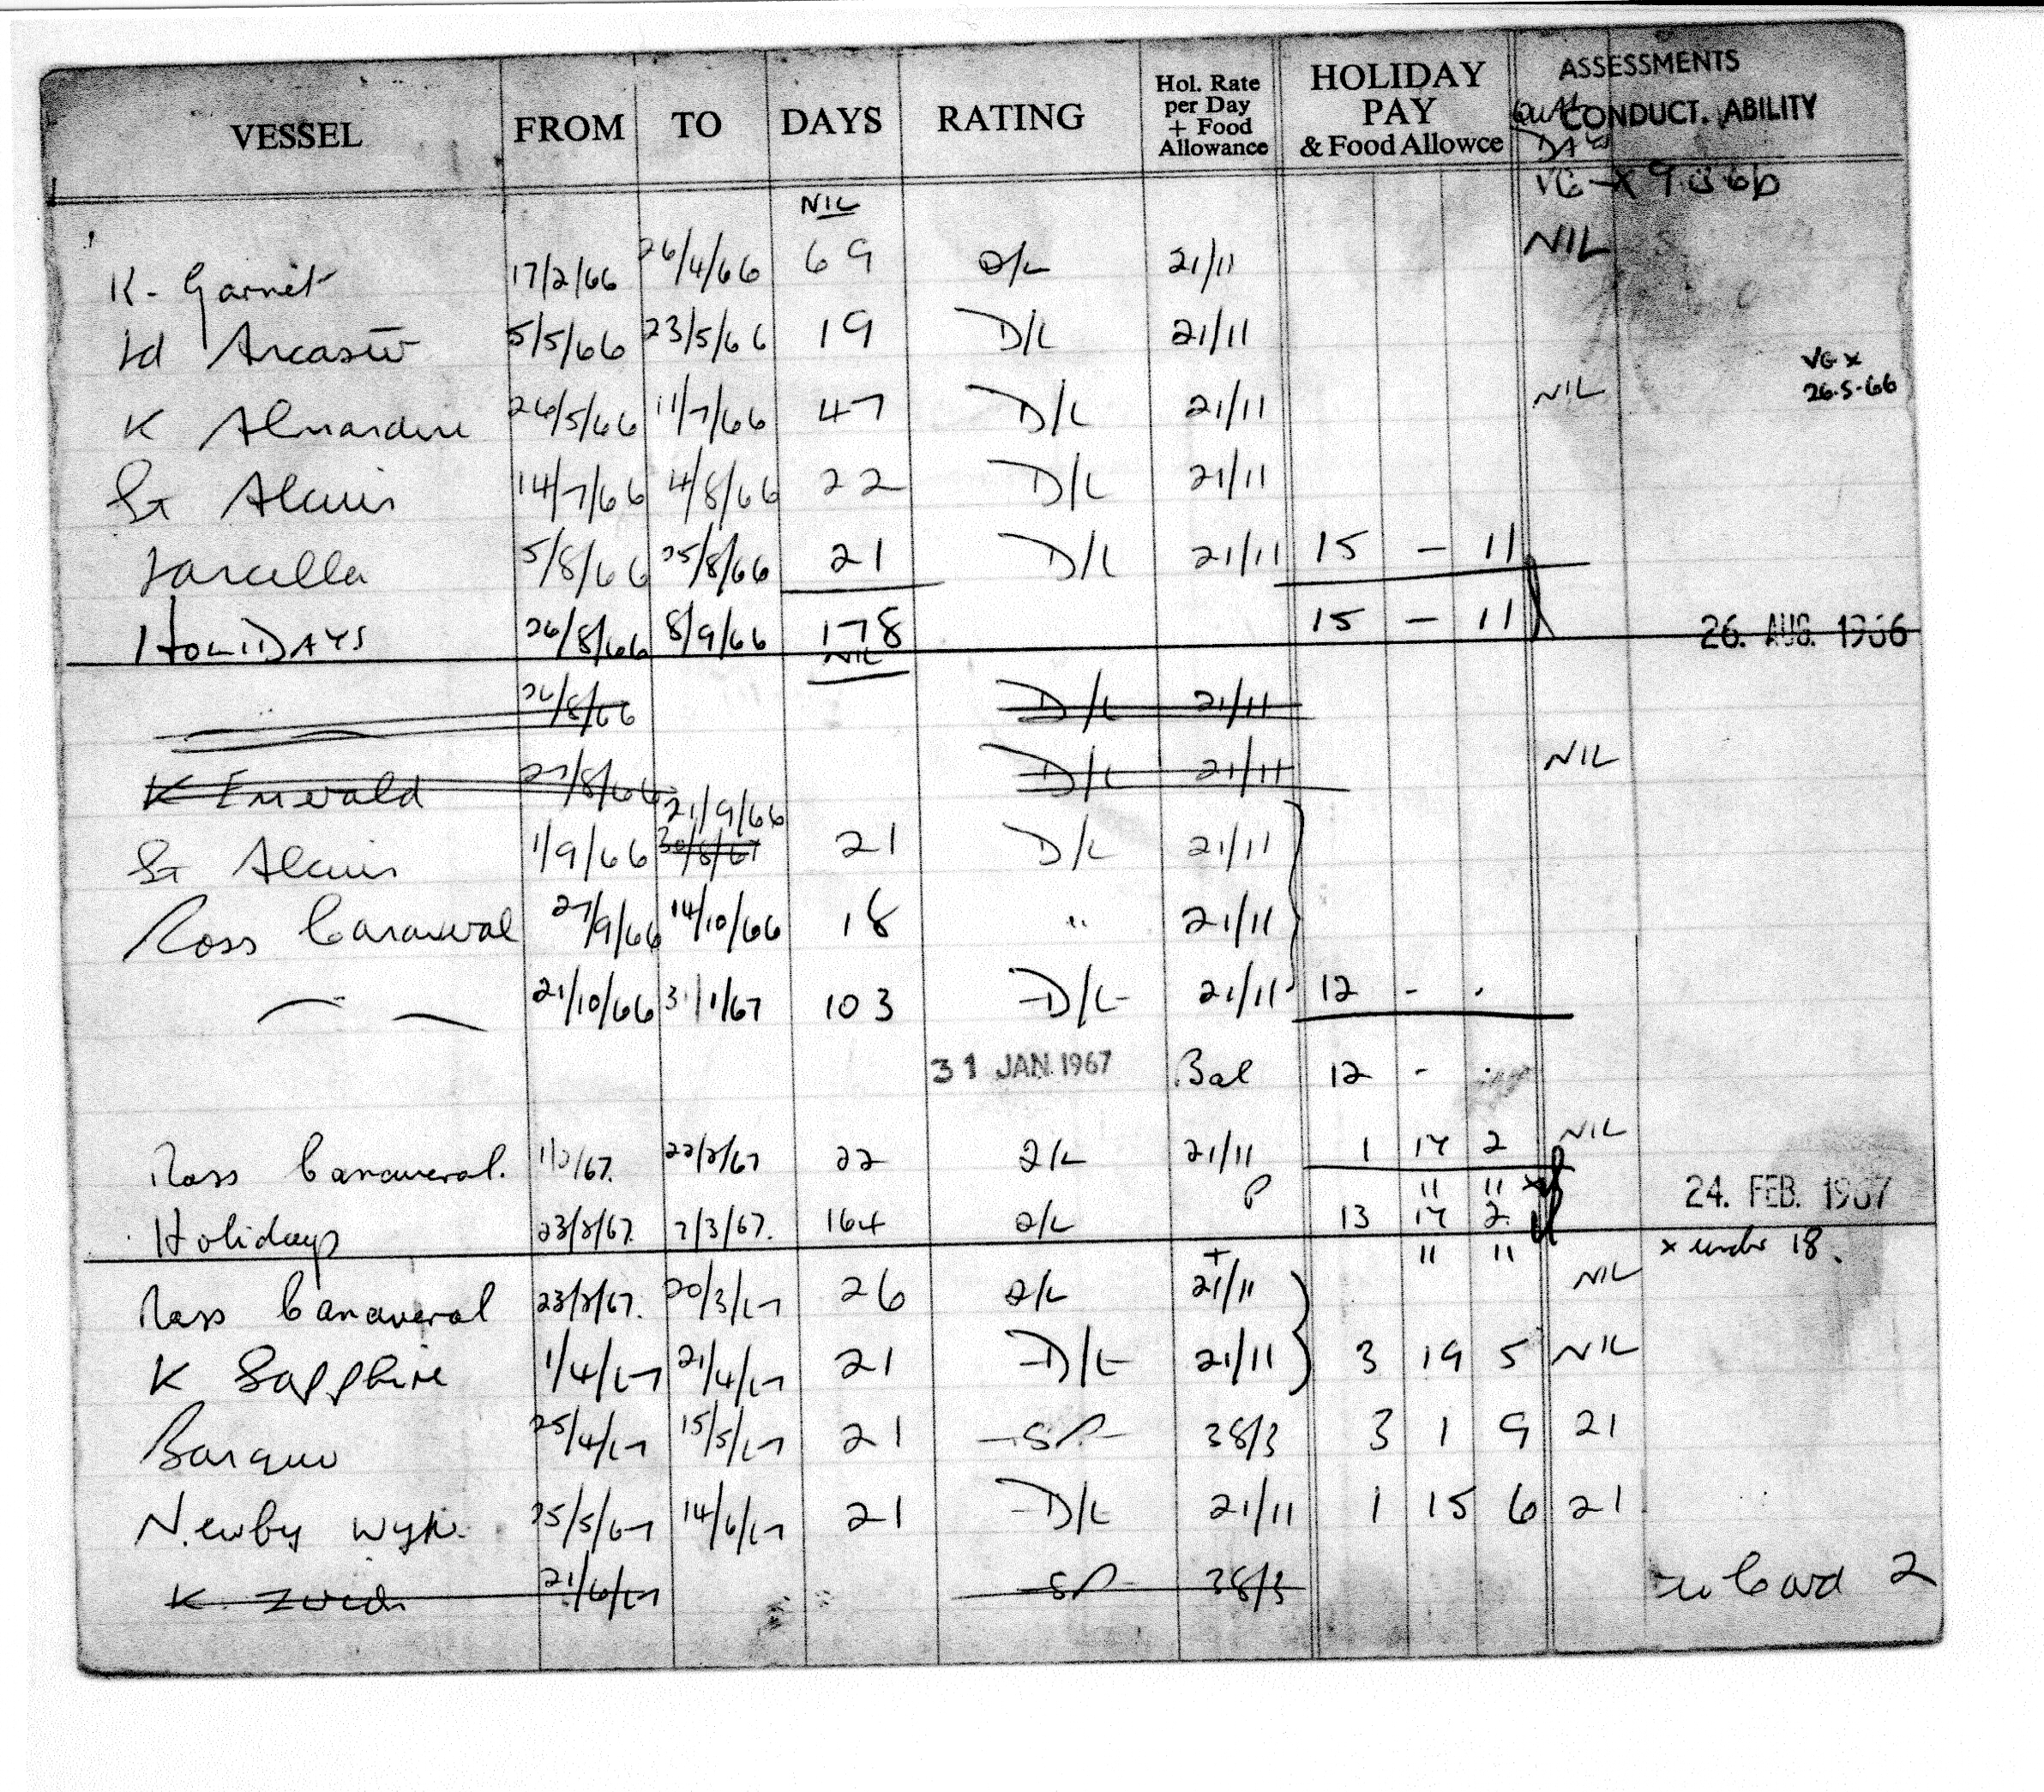 VESSEL FROM TO DAYS RATING Hol. Rate per Day + Food Allowance HOLIDAY PAY & Food Allowce ASSESSMENTS CONDUCT. ABILITY
NIL VG X
K. Garnet 17/2/66 26/4/66 69 D/L 21/11 NIL
Ld Ancaster 5/5/66 23/5/66 19 D/L 21/11
VG X
26.5.66
K Almandine 26/5/66 11/7/66 47 D/L 21/11 NIL
St Alcuin 14/7/66 4/8/66 22 D/L 21/11
Larcella 5/8/66 25/8/66 21 D/L 21/11 15 - 11
HOLIDAYS 26/8/66 8/9/66 178 15 - 11 26. AUG. 1966
NIL
26/8/66 D/L 21/11
K Emerald 27/8/66 D/L 21/11 NIL
21/9/66
St Alcuin 1/9/66 21 D/L 21/11
Ross Canaveral 27/9/66 14/10/66 18 " 21/11
21/10/66 31/1/67 103 D/L 21/11 12 - .
31 JAN. 1967 Bal 12 - .
Ross Canaveral. 1/2/67. 22/2/67 22 D/L 21/11 1 14 2 NIL
11 11 x 24. FEB. 1967
Holidays 23/2/67. 7/3/67. 164 D/L 13 14 2
11 11 x under 18.
Ross Canaveral 23/2/67. 20/3/67 26 D/L 21/11 NIL
K Sapphire 1/4/67 21/4/67 21 D/L 21/11 3 19 5 NIL
Barquo 25/4/67 15/5/67 21 SP 38/3 3 1 9 21
Newby Wyke 25/5/67 14/6/67 21 D/L 21/11 1 15 6 21
K. 21/6/67 SP 38/3 Card 2